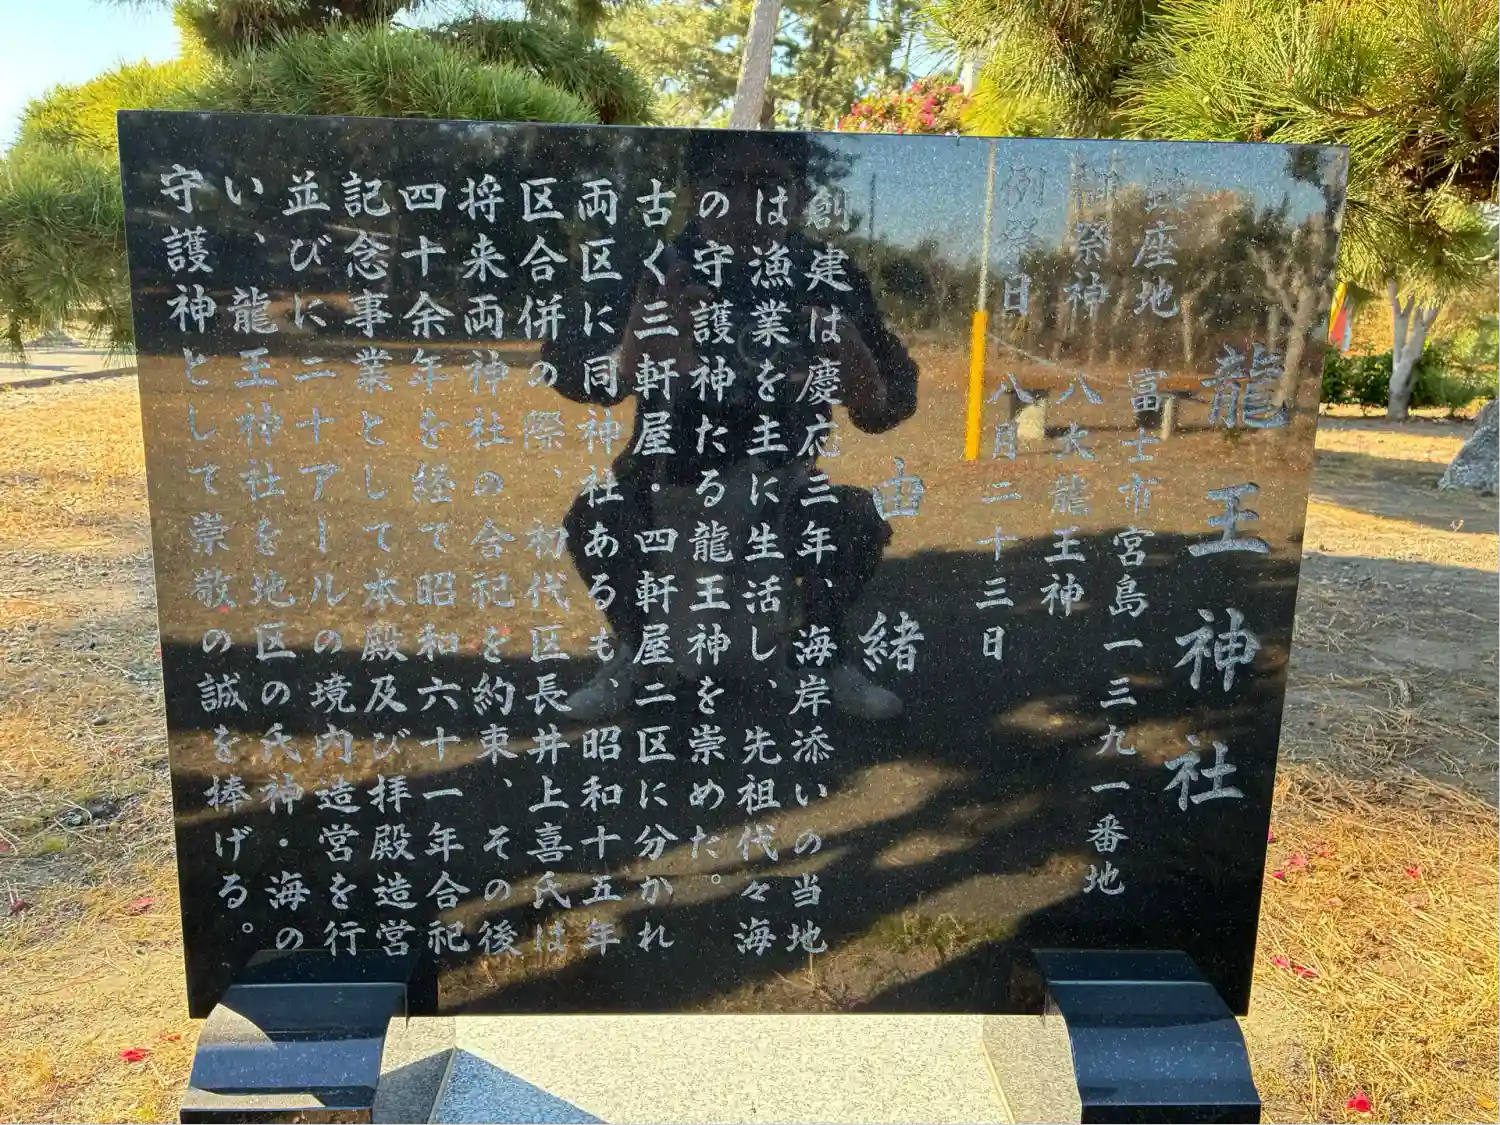 龍王神社
鎮座地　富士市宮島一一三九一一番地
御祭神　八大龍王神
例祭日　八月二十三日
由緒
創建は慶応三年、海岸添いの当地
は漁業を主に生活し、先祖代々海
の守護神たる龍王神を崇めた。
古く三軒屋・四軒屋二区に分かれ
両区に同神社あるも、昭和十五年
区合併の際、初代区長井上喜氏は
将来両神社の合祀を約束、その後
四十余年を経て昭和六十一年合祀
記念事業として本殿及び拝殿造営
並びに二十アールの境内造営を行
い、龍王神社を地区の氏神・海の
守護神として崇敬の誠を捧げる。